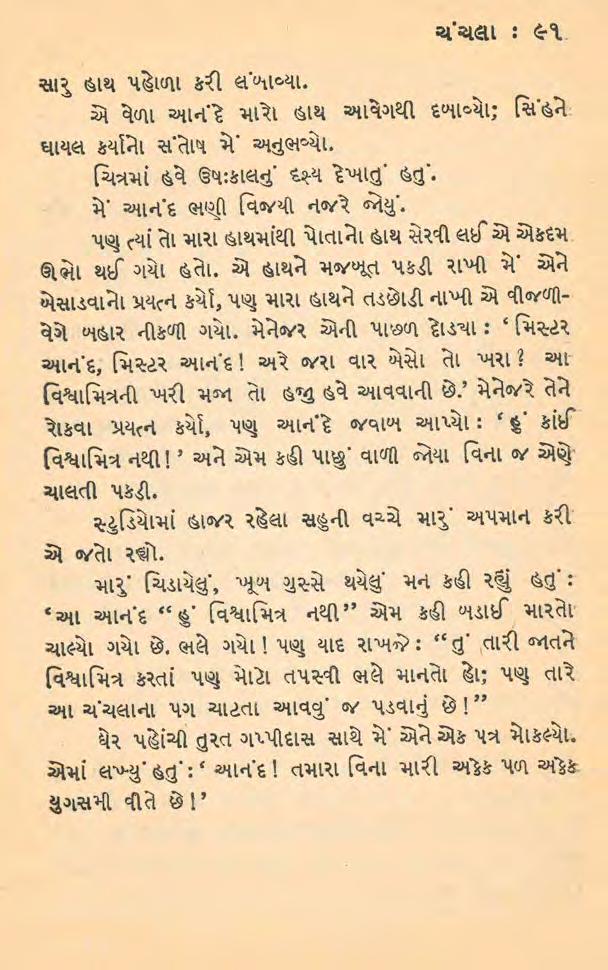 ચંચલા : ૯૧
સારુ હાથ પહોળા કરી લંબાવ્યા.
એ વેળા આનંદે મારો હાથ આવેગથી દબાવ્યો; સિંહને
ઘાયલ કર્યાનો સંતોષ મેં અનુભવ્યો.
ચિત્રમાં હવે ઉષઃકાલનું દૃશ્ય દેખાતું હતું.
મેં આનંદ ભણી વિજયી નજરે જોયું.
પણ ત્યાં તો મારા હાથમાંથી પોતાનો હાથ સેરવી લઈ એ એકદમ
ઊભો થઈ ગયો હતો. એ હાથને મજબૂત પકડી રાખી મેં એને
બેસાડવાનો પ્રયત્ન કર્યો, પણ મારા હાથને તડછોડી નાખી એ વીજળી-
વેગે બહાર નીકળી ગયો. મેનેજર એની પાછળ દોડ્યા : ‘મિસ્ટર
આનંદ, મિસ્ટર આનંદ! અરે જરા વાર બેસો તો ખરા? આ
વિશ્વામિત્રની ખરી મજા તો હજી હવે આવવાની છે.’ મેનેજરે તેને
રોકવા પ્રયત્ન કર્યો, પણ આનંદે જવાબ આપ્યો : ‘હું કાંઈ
વિશ્વામિત્ર નથી!’ અને એમ કહી પાછું વાળી જોયા વિના જ એણે
ચાલતી પકડી.
સ્ટુડિયોમાં હાજર રહેલા સહુની વચ્ચે મારું અપમાન કરી
એ જતો રહ્યો.
મારું ચિડાયેલું, ખૂબ ગુસ્સે થયેલું મન કહી રહ્યું હતું :
‘આ આનંદ “હું વિશ્વામિત્ર નથી” એમ કહી બડાઈ મારતો
ચાલ્યો ગયો છે. ભલે ગયો! પણ યાદ રાખજે : “તું તારી જાતને
વિશ્વામિત્ર કરતાં પણ મોટો તપસ્વી ભલે માનતો હો; પણ તારે
આ ચંચલાના પગ ચાટતા આવવું જ પડવાનું છે!”
ઘેર પહોંચી તુરત ગપ્પીદાસ સાથે મેં એને એક પત્ર મોકલ્યો.
એમાં લખ્યું હતું : ‘આનંદ! તમારા વિના મારી અકેક પળ અકેક
યુગસમી વીતે છે!’